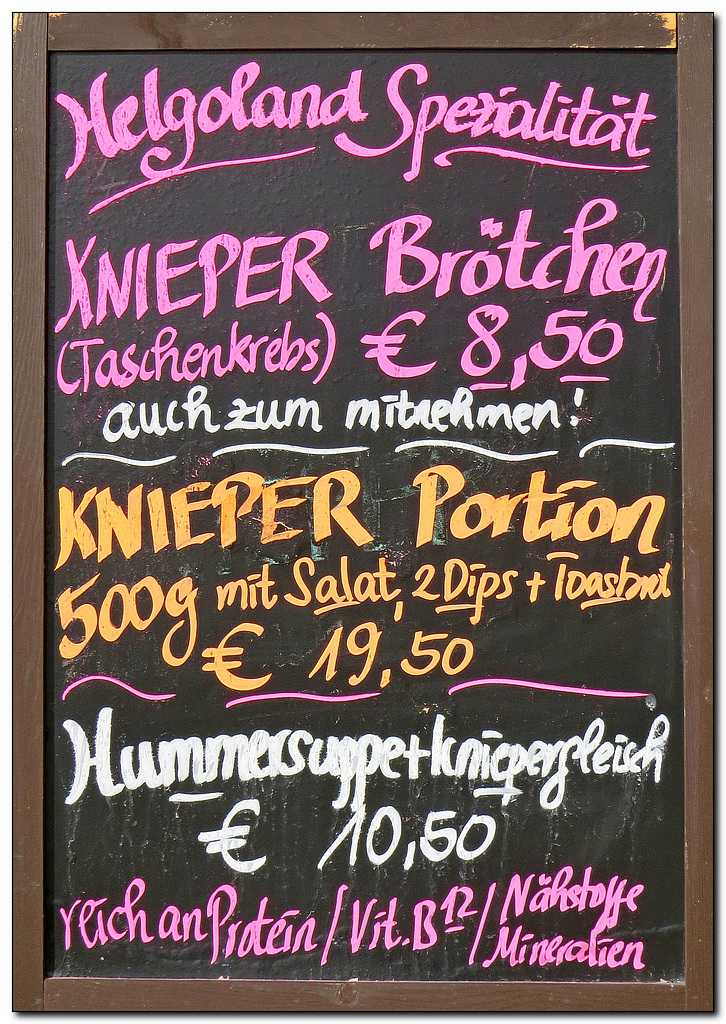 Helgoland Spezialität
KNIEPER Brötchen
(Taschenkrebs) € 8,50
auch zum mitnehmen!
KNIEPER Portion
500g mit Salat, 2 Dips + Toastbrot
€ 19,50
Hummersuppe + kniepergfleisch
€ 10,50
reich an Protein / Vit. B 12 / Nähstoffe
Mineralien